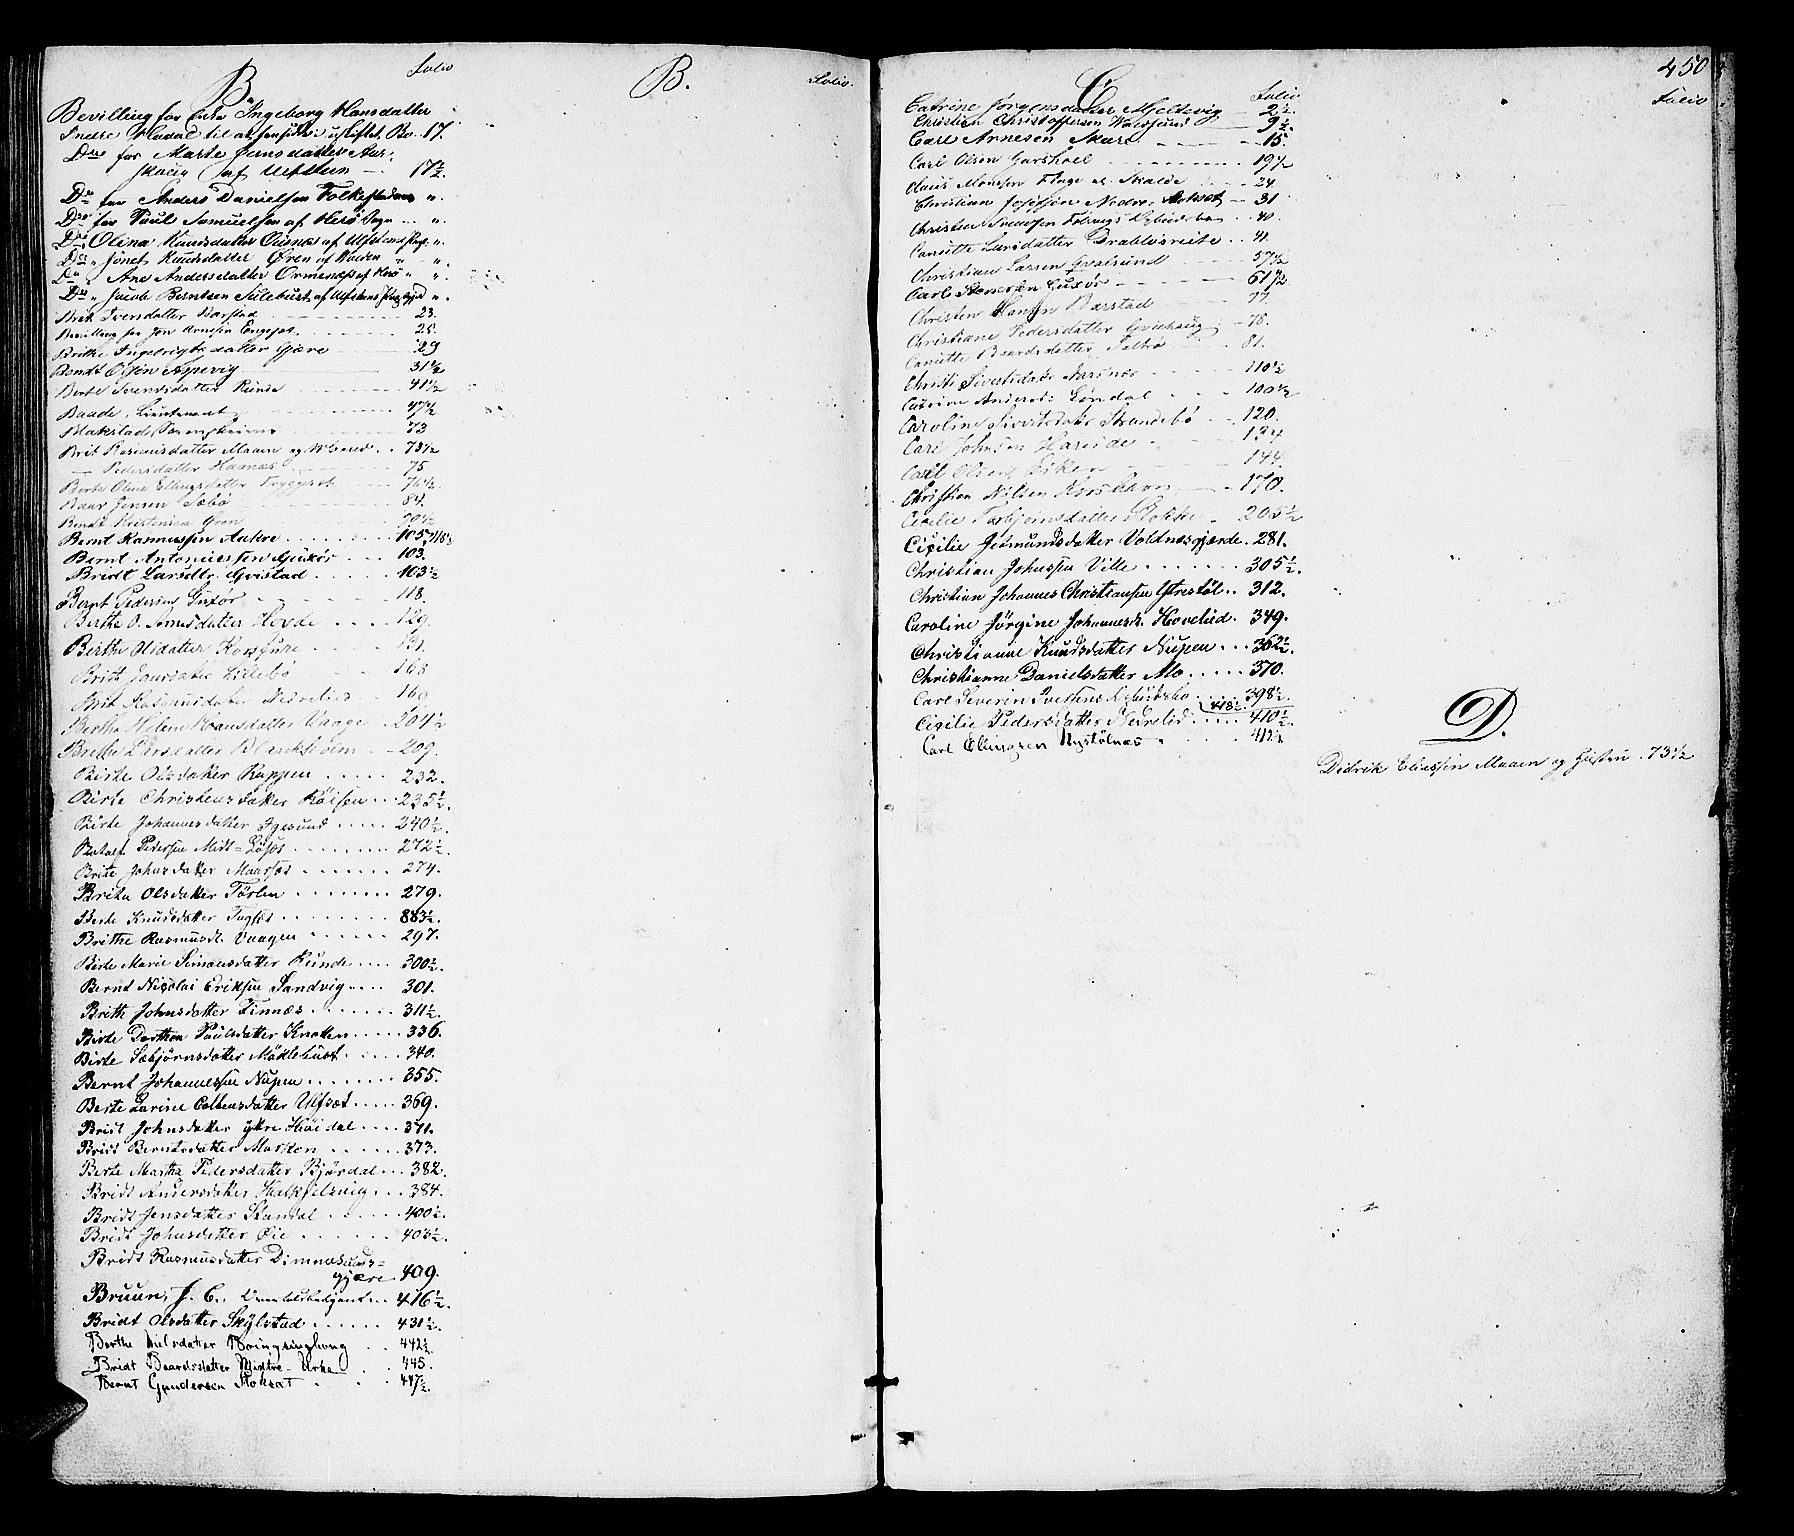 B
Folio
Bevilling for Enke Ingeborg Hansdatter
Indre til at sensidde i uskiftet Bo. 17.
Do for Marte Jensdatter
af Ulfsten - 17½.
Do for Anders Danielsen Folkestad "
Do for Paul Samuelsen af Herö Sogn "
Do Olina Knudsdatter af Ulfsten "
Do " Jonet Knudsdatter Ören af Volden "
Do " Ane Andersdatter Ormenæs af Herö "
Do " Jacob Berntsen Sulebust af Ulfsten "
Brit Svendsdatter Barstad 23.
Bevilling for Jon Arnesen Engeset 25.
Brithe Ingebrigtsdatter Gjære 29
Bendt Olsen Aspevig 31½
Berte Svendsdatter Runde 41½
Baade, Lieutenant 47½
Blakstad 73
Brit Rasmusdatter Maaen og 73½
— Pedersdatter Haanæs 75
Berte Oline Ellingsdatter Tryggeset 76½
Baar Jensen Sæbö 84.
Bendt Kristensen 90½
Bernt Rasmussen Aukre 105, 118½
Bernt Antoniussen Gjuxör 103.
Bridt Larsdtr Qvistad 103½
Bernt Pedersen Luxör 118.
Berthe O. datter Hovde 129.
Berthe Olsdatter Korsfure 131.
Brith datter Lidebö 168
Brit Rasmusdatter Nedrelied 169
Berthe Helene Hansdatter Vaage 204½
Brithe Larsdatter Blenkheim 209.
Birte Olsdatter Kuppen 232.
Birte Christensdatter Röisen 235½.
Birte Johannesdatter Igesund 240½.
Botolf Pedersen Midt=Löset 272½.
Brite Johnsdatter Maarset 274.
Brita Olsdatter Törlen 279.
Berte Knudsdatter 883½.
Brithe Rasmusdt. Vaagen 297.
Birte Marie Simonsdatter Runde 300½.
Bernt Nicolai Eriksen Sandvig 301.
Brithe Johnsdatter Finnæs 311½.
Birte Dorthea Paulsdatter Knoten 336.
Birte Sæbjörnsdatter Mödlebust 340.
Bernt Johannessen Nupen 355.
Berte Larine Coldensdatter Ulfsæt 369.
Bridt Johnsdatter ytre Höidal 371.
Bridt Berntsdatter Morken 373.
Berte Martha Pedersdatter Björdal 382.
Bridt Andersdatter 384.
Bridt Jensdatter Standal 400½
Bridt Johnsdatter Öie 403½.
Bridt Rasmusdatter Dimnæsunds=
gjære 409.
Bruun, J. C., 416½.
Bridt Olsdatter Skylstad 431½.
Berthe Nielsdatter 442½.
Bridt Baardsdatter Midtre-Urke 445.
Bernt Gundersen Stokset 447½.
B.
Folio.
C
Folio
Catrine Jørgensdatter Mjeltevig 2½.
Christian Christoffersen Voldsund 9½.
Carl Arnesen Skare 15.
Carl Olsen Garshol 19½
Claus Monssen Flage el. Skalde 24.
Christian Josefsen Nedre Stokset 31
Christen 40.
Canutte Larsdatter Drabløsreite 41.
Christian Larsen Qvalsund 57½
Carl Stenersen Luxör 61½
Christen Hansen Barstad 77.
Christiane Pedersdatter Qviehaug 78.
Canutte Baardsdatter Saltrö 81.
Christi Sivertsdatter Aarsnæs 110½
Catrine Andersdr. Løndal 100½
Caroline Sivertsdatter Strandebö 120.
Carl Johnsen Hareide 134
Carl Olsen Eiken 144.
Christian Nilsen Kirshavn 170.
Cecilie Torbjörnsdatter Stokke 205½
Cicilie Jetmundsdatter Voldnesgjærde 281.
Christian Johnsen Ville 305½.
Christian Johannes Christiansen Ytrestöl 312.
Caroline Jörgine Johannesdr. Hovelid 349.
Christianne Knudsdatter Nupen 362½.
Christianne Danielsdatter Mo 370.
Carl Severin Ivertsen 398½.
418½
Cicilie Pedersdatter Nedrelid 410½.
Carl Ellingsen Nystölnæs 412½
450
Folio
D.
Didrik Eliassen Maaen og 73½